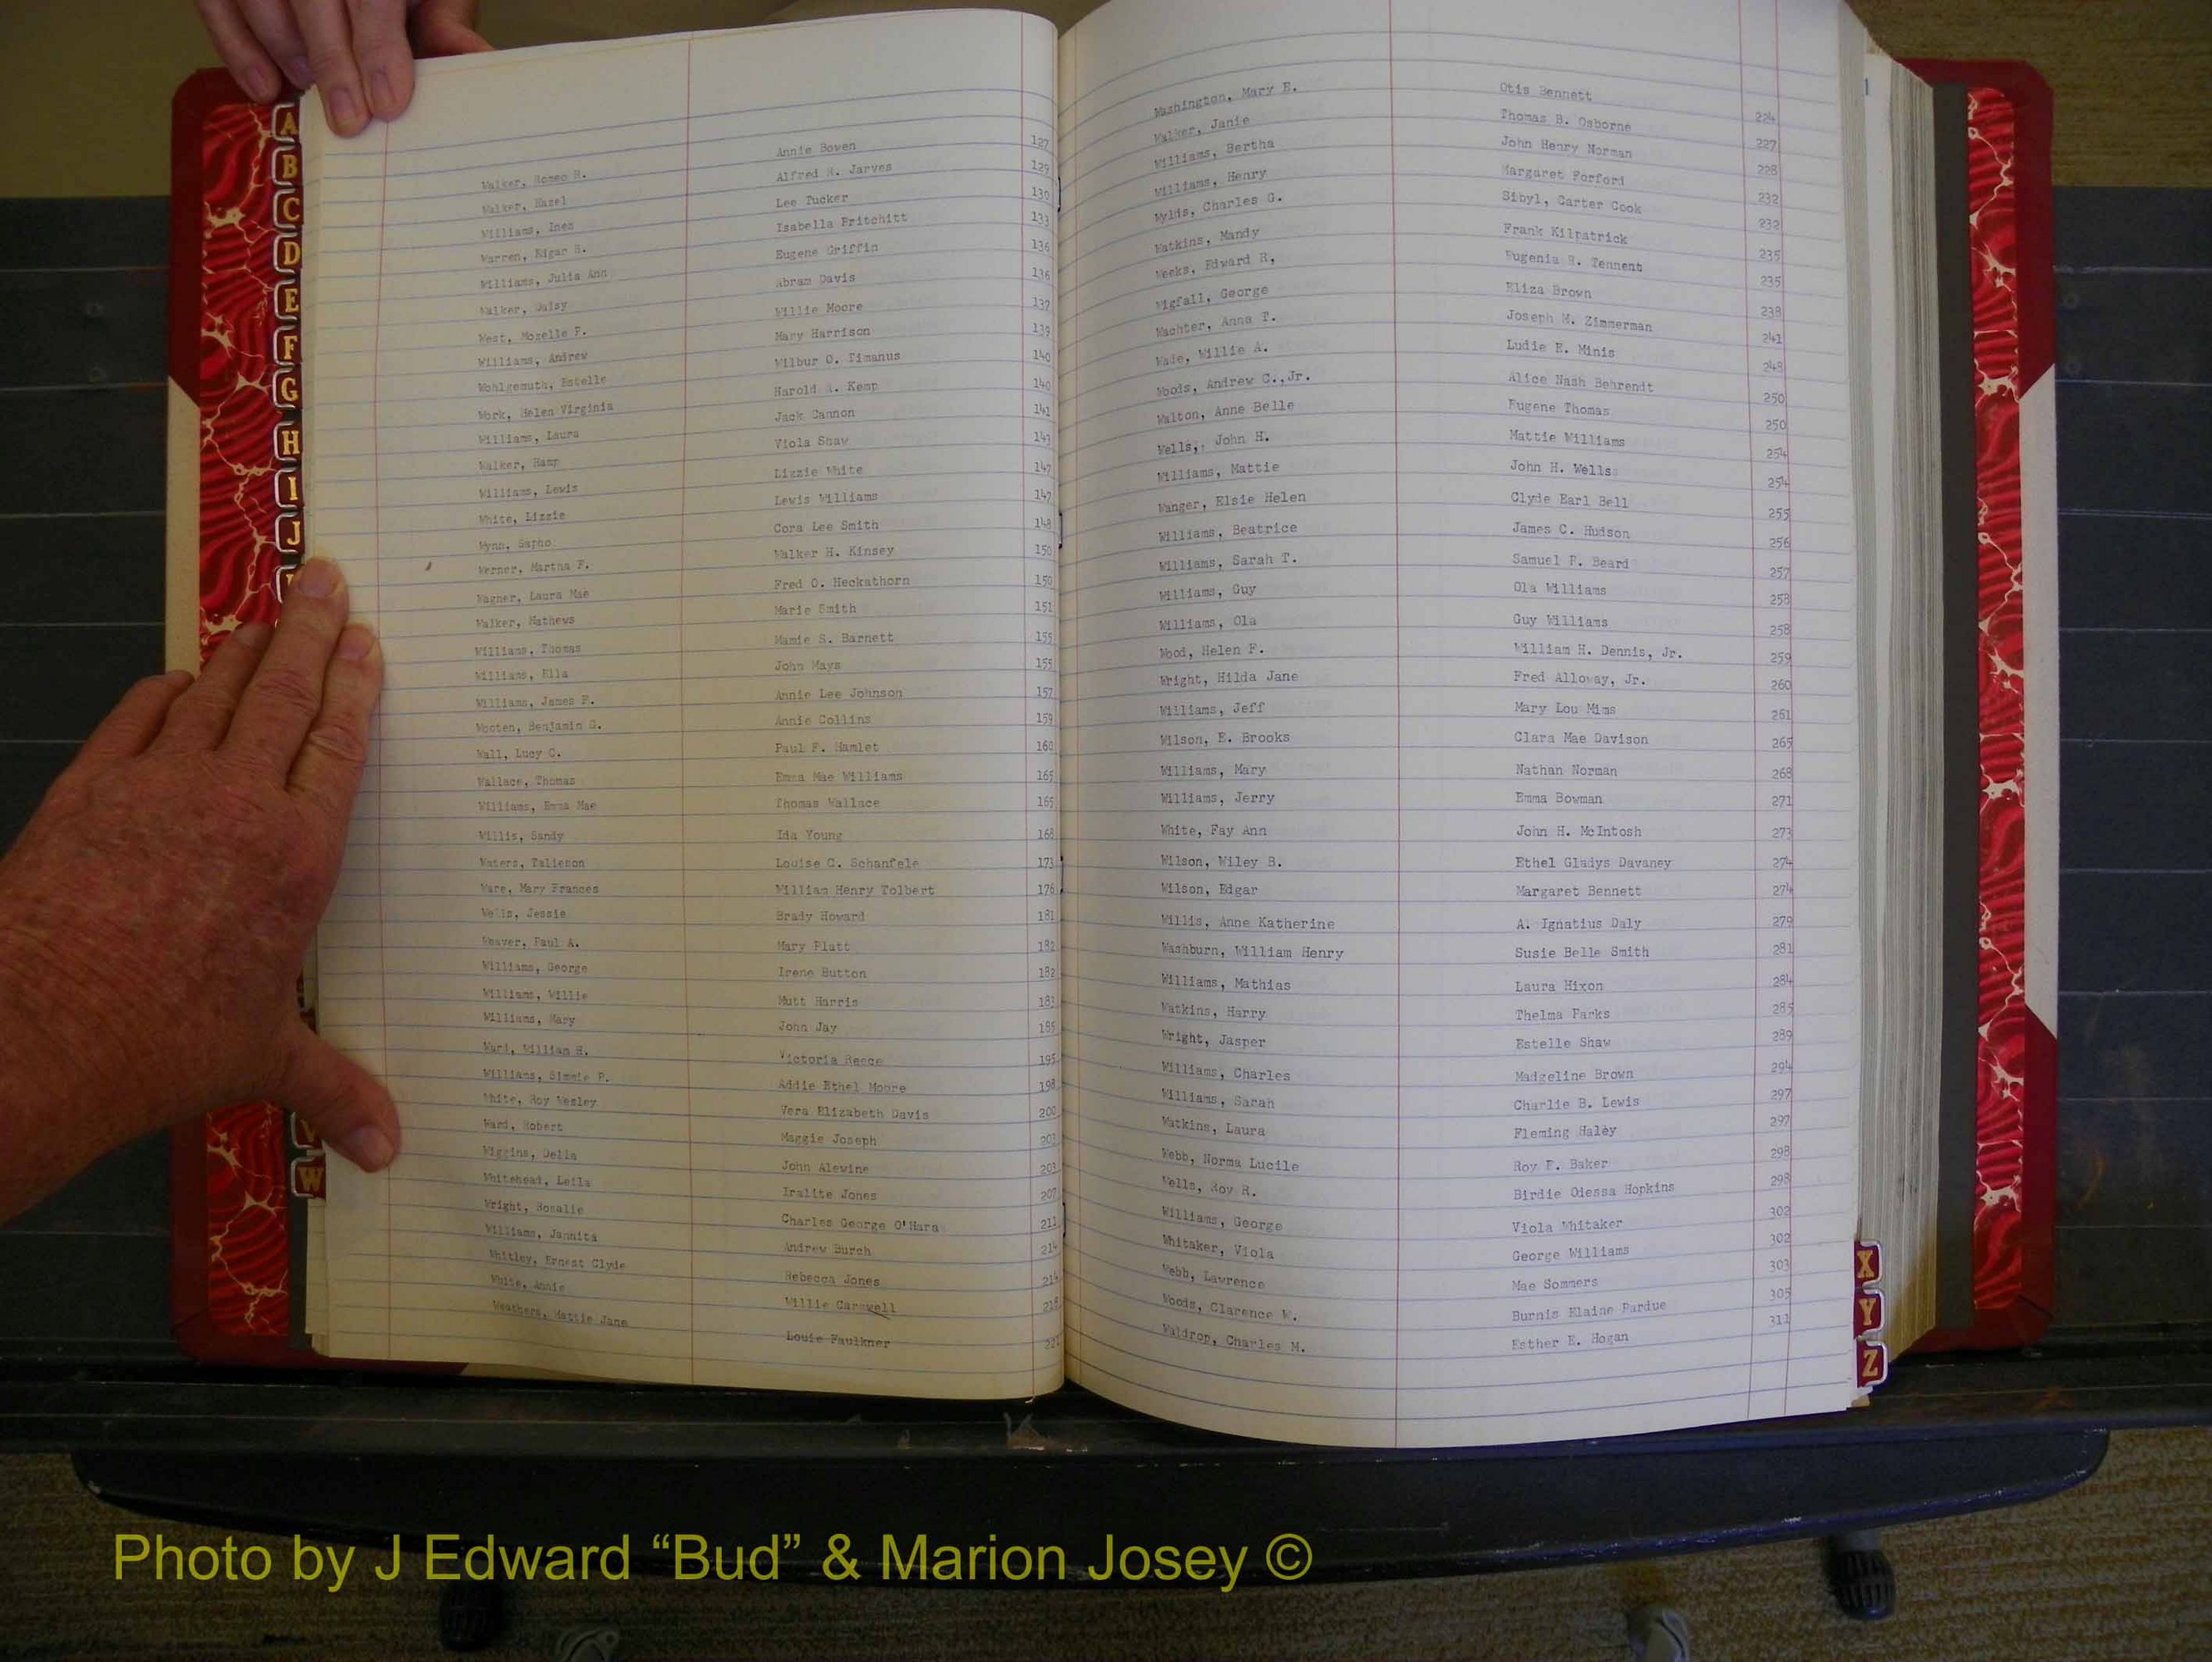 A
B
C
D
E
F
G
H
I
J
W
Walker, Romeo R. Annie Bowen 127
Walker, Hazel Alfred R. Jarves 129
Williams, Inez Lee Tucker 130
Warren, Edgar R. Isabella Pritchitt 133
Williams, Julia Ann Eugene Griffin 136
Walker, Daisy Abram Davis 136
West, Mozelle F. Willie Moore 137
Williams, Andrew Mary Harrison 139
Wohlgemuth, Estelle Wilbur O. Timanus 140
Work, Helen Virginia Harold A. Kemp 140
Williams, Laura Jack Cannon 141
Walker, Hamp Viola Shaw 143
Williams, Lewis Lizzie White 147
White, Lizzie Lewis Williams 147
Wynn, Sapho Cora Lee Smith 148
Werner, Martha F. Walker H. Kinsey 150
Wagner, Laura Mae Fred O. Heckathorn 150
Walker, Mathews Marie Smith 151
Williams, Thomas Mamie S. Barnett 155
Williams, Ella John Mays 155
Williams, James F. Annie Lee Johnson 157
Wooten, Benjamin G. Annie Collins 159
Wall, Lucy C. Paul F. Hamlet 160
Wallace, Thomas Emma Mae Williams 165
Williams, Emma Mae Thomas Wallace 165
Willis, Sandy Ida Young 168
Waters, Taliebon Louise C. Schanfele 173
Ware, Mary Frances William Henry Tolbert 176
Wells, Jessie Brady Howard 181
Weaver, Paul A. Mary Platt 182
Williams, George Irene Button 182
Williams, Willie Mutt Harris 183
Williams, Mary John Jay 185
Ward, William H. Victoria Reece 195
Williams, Simmie P. Addie Ethel Moore 198
White, Roy Wesley Vera Elizabeth Davis 200
Ward, Robert Maggie Joseph 203
Wiggins, Della John Alewine 203
Whitehead, Leila Iralite Jones 207
Wright, Rosalie Charles George O'Hara 211
Williams, Jannita Andrew Burch 214
Whitley, Ernest Clyde Rebecca Jones 214
White, Annie Willie Carswell 218
Weathers, Mattie Jane Louie Faulkner 221
Washington, Mary E. Otis Bennett 224
Walker, Janie Thomas B. Osborne 227
Williams, Bertha John Henry Norman 228
Williams, Henry Margaret Forford 232
Wylds, Charles G. Sibyl, Carter Cook 232
Watkins, Mandy Frank Kilpatrick 235
Weeks, Edward R, Eugenia R. Tennent 235
Wigfall, George Eliza Brown 238
Wachter, Anna T. Joseph M. Zimmerman 241
Wade, Willie A. Ludie E. Minis 248
Woods, Andrew C.,Jr. Alice Nash Behrendt 250
Walton, Anne Belle Eugene Thomas 250
Wells,, John H. Mattie Williams 254
Williams, Mattie John H. Wells 254
Wanger, Elsie Helen Clyde Earl Bell 255
Williams, Beatrice James C. Hudson 256
Williams, Sarah T. Samuel P. Beard 257
Williams, Guy Ola Williams 258
Williams, Ola Guy Williams 258
Wood, Helen F. William H. Dennis, Jr. 259
Wright, Hilda Jane Fred Alloway, Jr. 260
Williams, Jeff Mary Lou Mims 261
Wilson, E. Brooks Clara Mae Davison 265
Williams, Mary Nathan Norman 268
Williams, Jerry Emma Bowman 271
White, Fay Ann John H. McIntosh 273
Wilson, Wiley B. Ethel Gladys Davaney 274
Wilson, Edgar Margaret Bennett 274
Willis, Anne Katherine A. Ignatius Daly 279
Washburn, William Henry Susie Belle Smith 281
Williams, Mathias Laura Hixon 284
Watkins, Harry Thelma Parks 285
Wright, Jasper Estelle Shaw 289
Williams, Charles Madgeline Brown 294
Williams, Sarah Charlie B. Lewis 297
Watkins, Laura Fleming Haley 297
Webb, Norma Lucile Roy F. Baker 298
Wells, Roy R. Birdie Odessa Hopkins 298
Williams, George Viola Whitaker 302
Whitaker, Viola George Williams 302
Webb, Lawrence Mae Sommers 303
Woods, Clarence W. Burnis Elaine Pardue 305
Waldrop, Charles M. Esther E. Hogan 311
X
Y
Z
Photo by J Edward “Bud” & Marion Josey ©